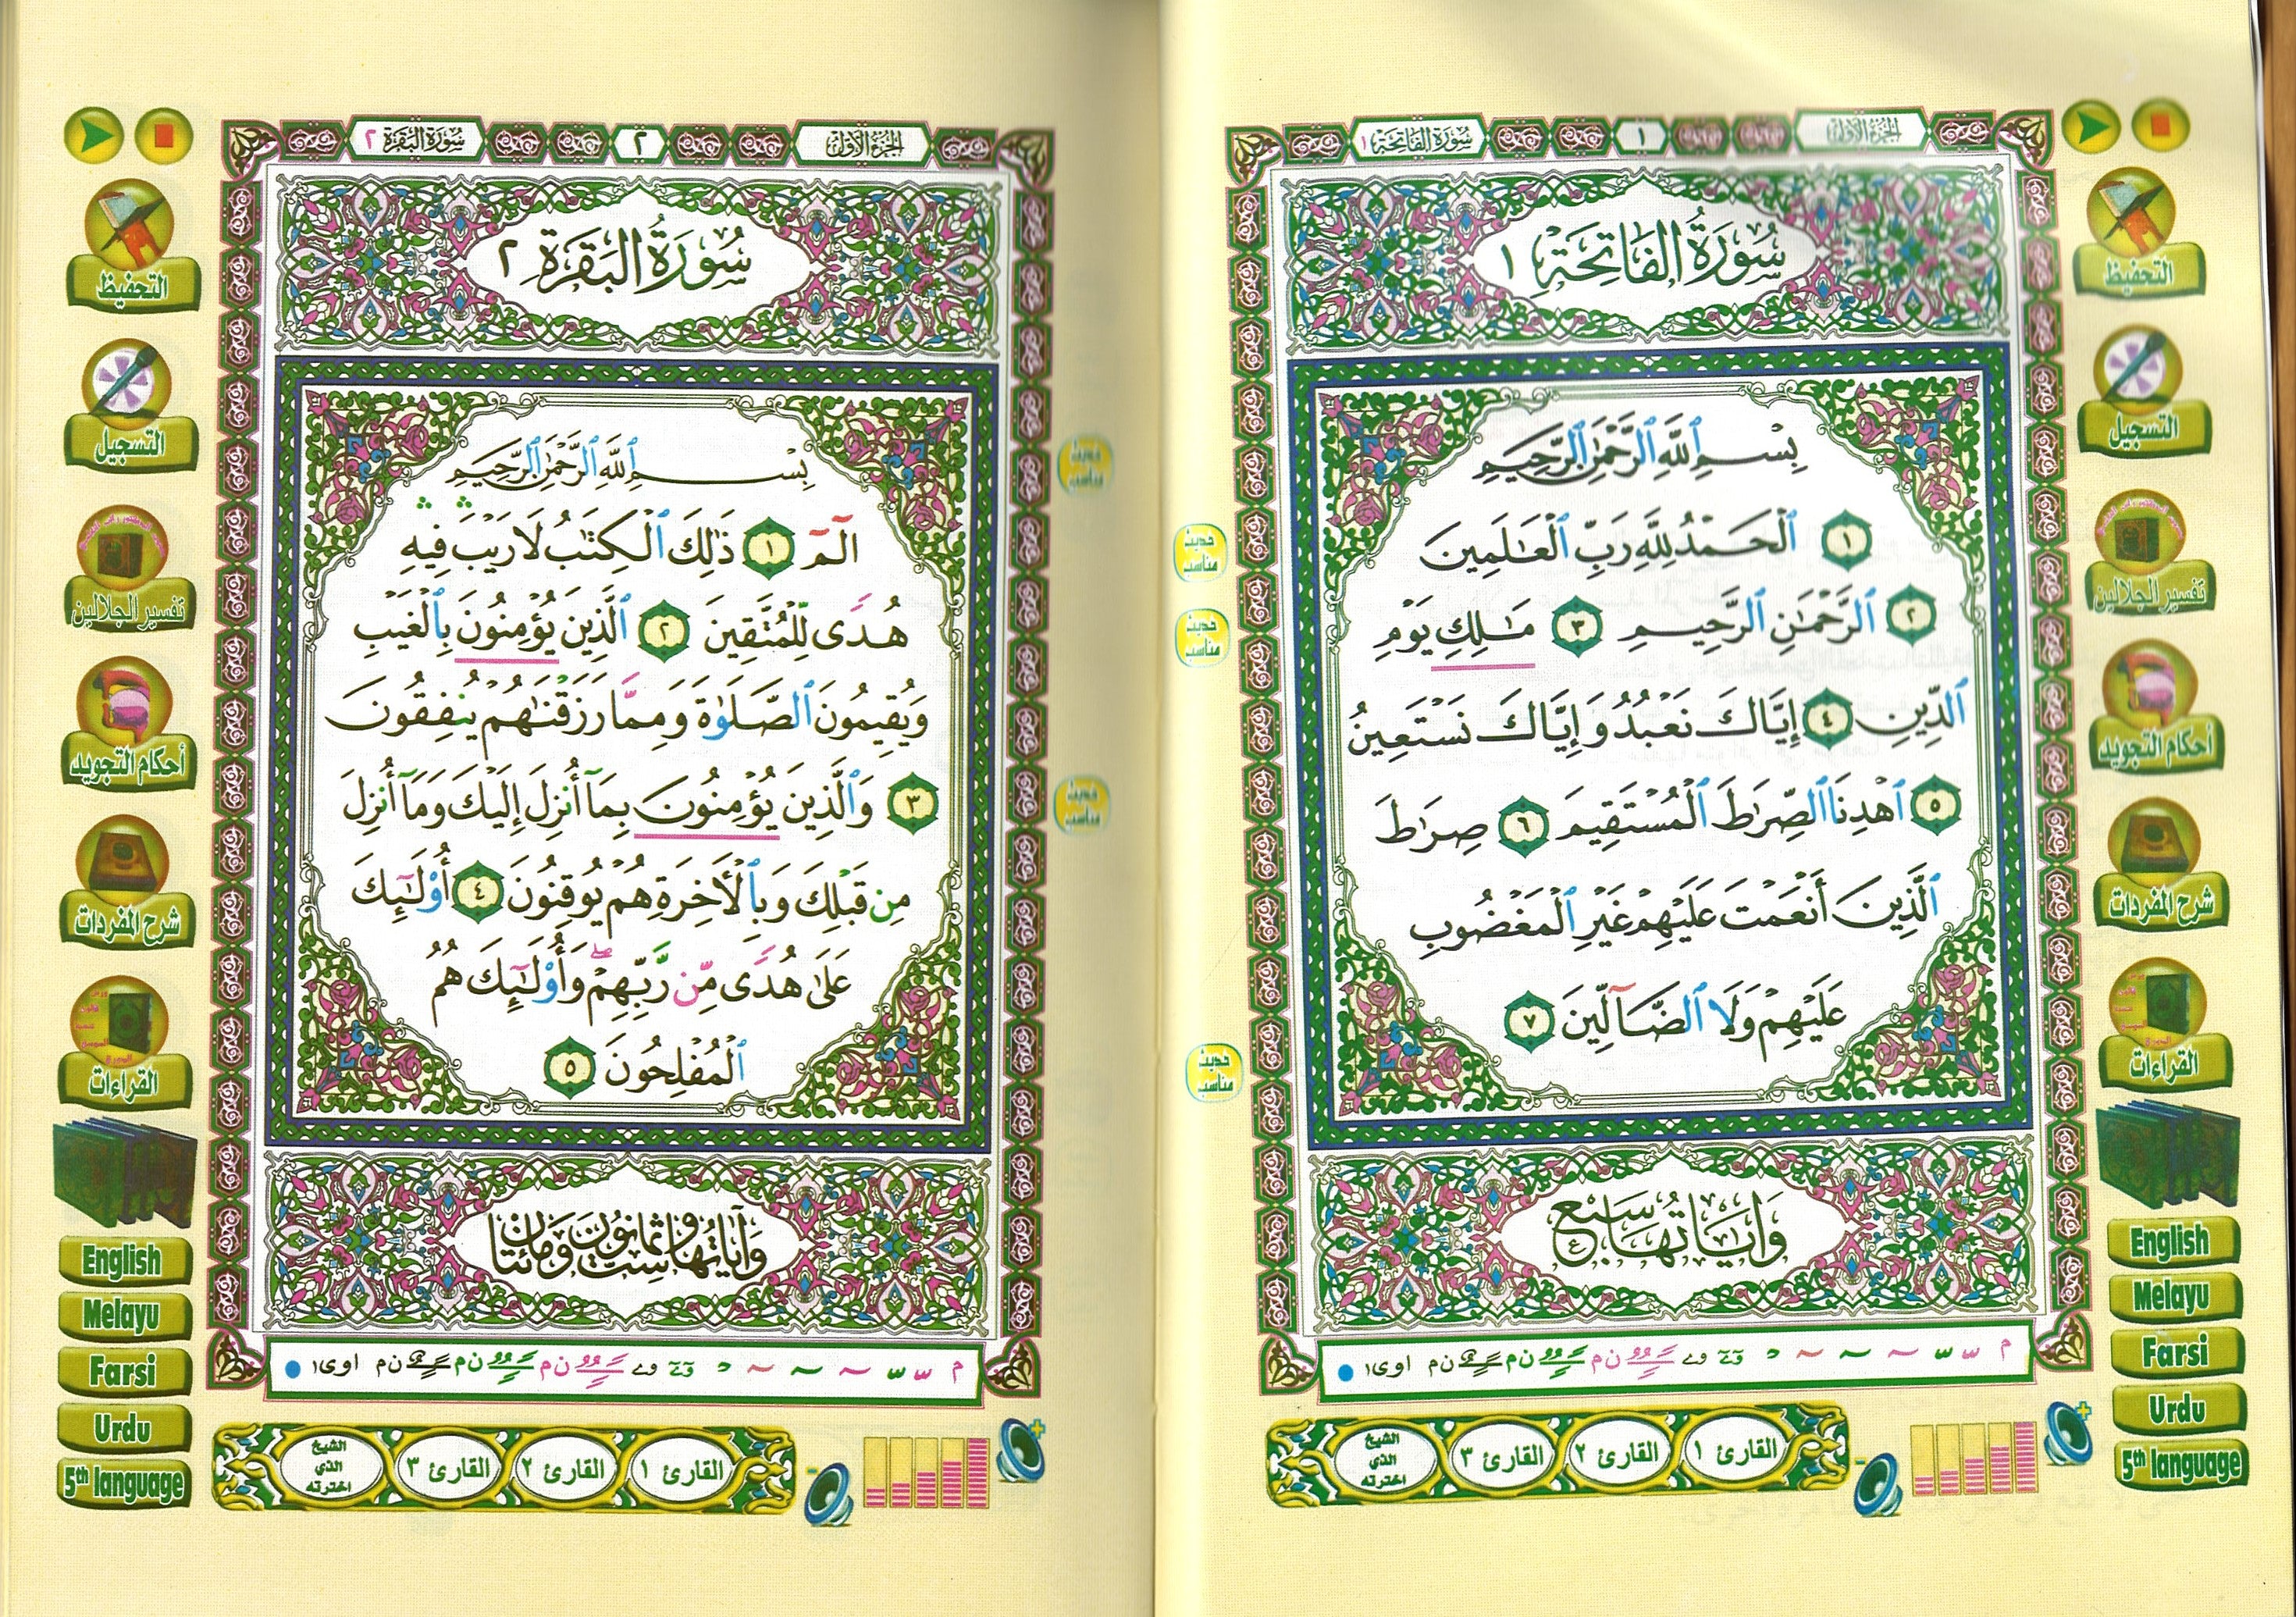 الجزء الأول
١
سورة الفاتحة ١
سُورَةُ الفَاتِحَةِ ١
بِسْمِ ٱللَّهِ ٱلرَّحْمَٰنِ ٱلرَّحِيمِ
١ ٱلْحَمْدُ لِلَّهِ رَبِّ ٱلْعَٰلَمِينَ
٢ ٱلرَّحْمَٰنِ ٱلرَّحِيمِ ٣ مَٰلِكِ يَوْمِ
ٱلدِّينِ ٤ إِيَّاكَ نَعْبُدُ وَإِيَّاكَ نَسْتَعِينُ
٥ ٱهْدِنَا ٱلصِّرَٰطَ ٱلْمُسْتَقِيمَ ٦ صِرَٰطَ
ٱلَّذِينَ أَنْعَمْتَ عَلَيْهِمْ غَيْرِ ٱلْمَغْضُوبِ
عَلَيْهِمْ وَلَا ٱلضَّآلِّينَ ٧
وَآيَاتُهَا سَبْعٌ
القارئ ١ القارئ ٢ القارئ ٣ الشيخ الذي اخترته
التحفيظ
التسجيل
تفسير الجلالين
أحكام التجويد
شرح المفردات
القراءات
English
Melayu
Farsi
Urdu
5th language
حديث مناسب
حديث مناسب
حديث مناسب
الجزء الأول
٢
سورة البقرة ٢
سُورَةُ البَقَرَةِ ٢
بِسْمِ ٱللَّهِ ٱلرَّحْمَٰنِ ٱلرَّحِيمِ
الٓمٓ ١ ذَٰلِكَ ٱلْكِتَٰبُ لَا رَيْبَ ۛ فِيهِ ۛ
هُدًى لِّلْمُتَّقِينَ ٢ ٱلَّذِينَ يُؤْمِنُونَ بِٱلْغَيْبِ
وَيُقِيمُونَ ٱلصَّلَوٰةَ وَمِمَّا رَزَقْنَٰهُمْ يُنفِقُونَ
٣ وَٱلَّذِينَ يُؤْمِنُونَ بِمَآ أُنزِلَ إِلَيْكَ وَمَآ أُنزِلَ
مِن قَبْلِكَ وَبِٱلْأَخِرَةِ هُمْ يُوقِنُونَ ٤ أُوْلَٰٓئِكَ
عَلَىٰ هُدًى مِّن رَّبِّهِمْ ۖ وَأُوْلَٰٓئِكَ هُمُ
ٱلْمُفْلِحُونَ ٥
وَآيَاتُهَا سِتٌّ وَثَمَانُونَ وَمِائَتَانِ
القارئ ١ القارئ ٢ القارئ ٣ الشيخ الذي اخترته
التحفيظ
التسجيل
تفسير الجلالين
أحكام التجويد
شرح المفردات
القراءات
English
Melayu
Farsi
Urdu
5th language
حديث مناسب
حديث مناسب